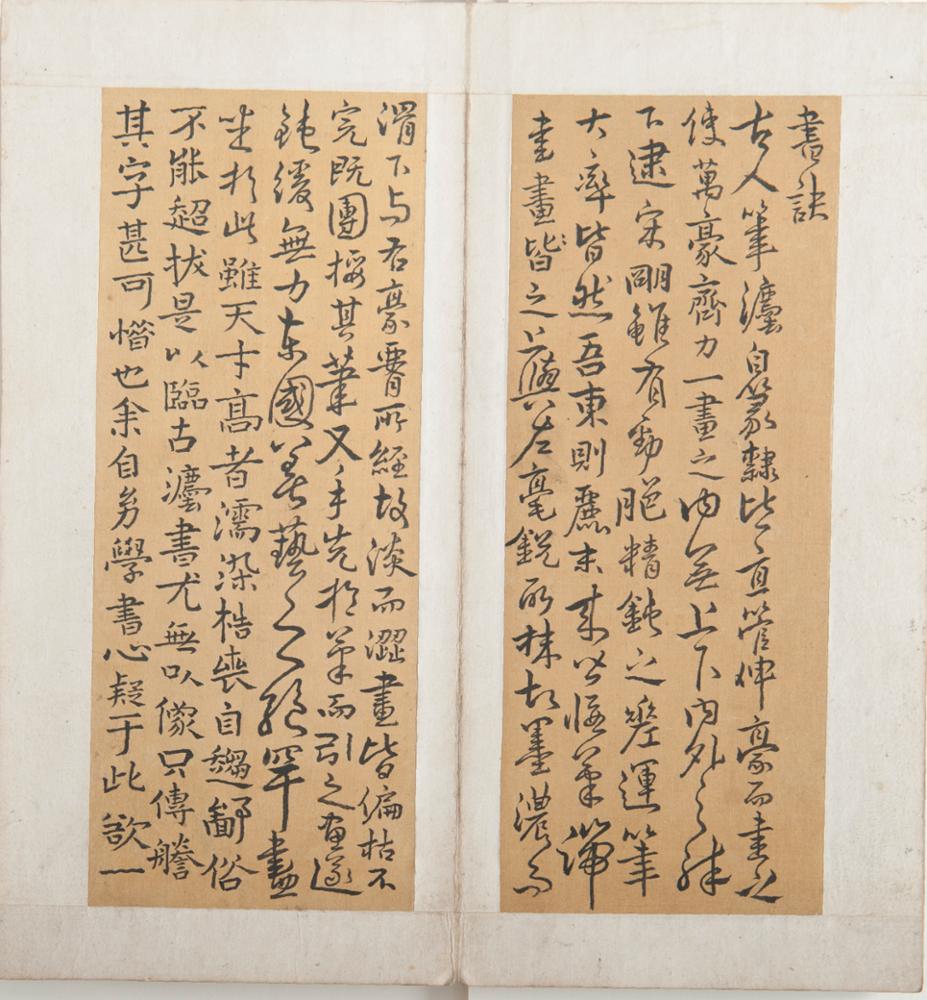 書訣
古人筆灋自篆隷皆直管伸豪而書之
使萬豪齊力一畫之內無上下內外之殊
下逮宋明雖有勁脆精鈍之差運筆
大率皆然吾東則麗末來皆偃筆端
書畫皆之上與左毫銳所抹故墨濃而
滑下与右豪腰所經故淡而澀畫皆偏枯不
完既團握其筆又手先於筆而引之畫遂
鈍緩無力東國藝之絕罕盡
坐於此雖天才高者濡染梏喪自趨鄙俗
不能超拔是以臨古灋書尤無以像只傳謄
其字甚可惜也余自兒學書心疑于此欲一